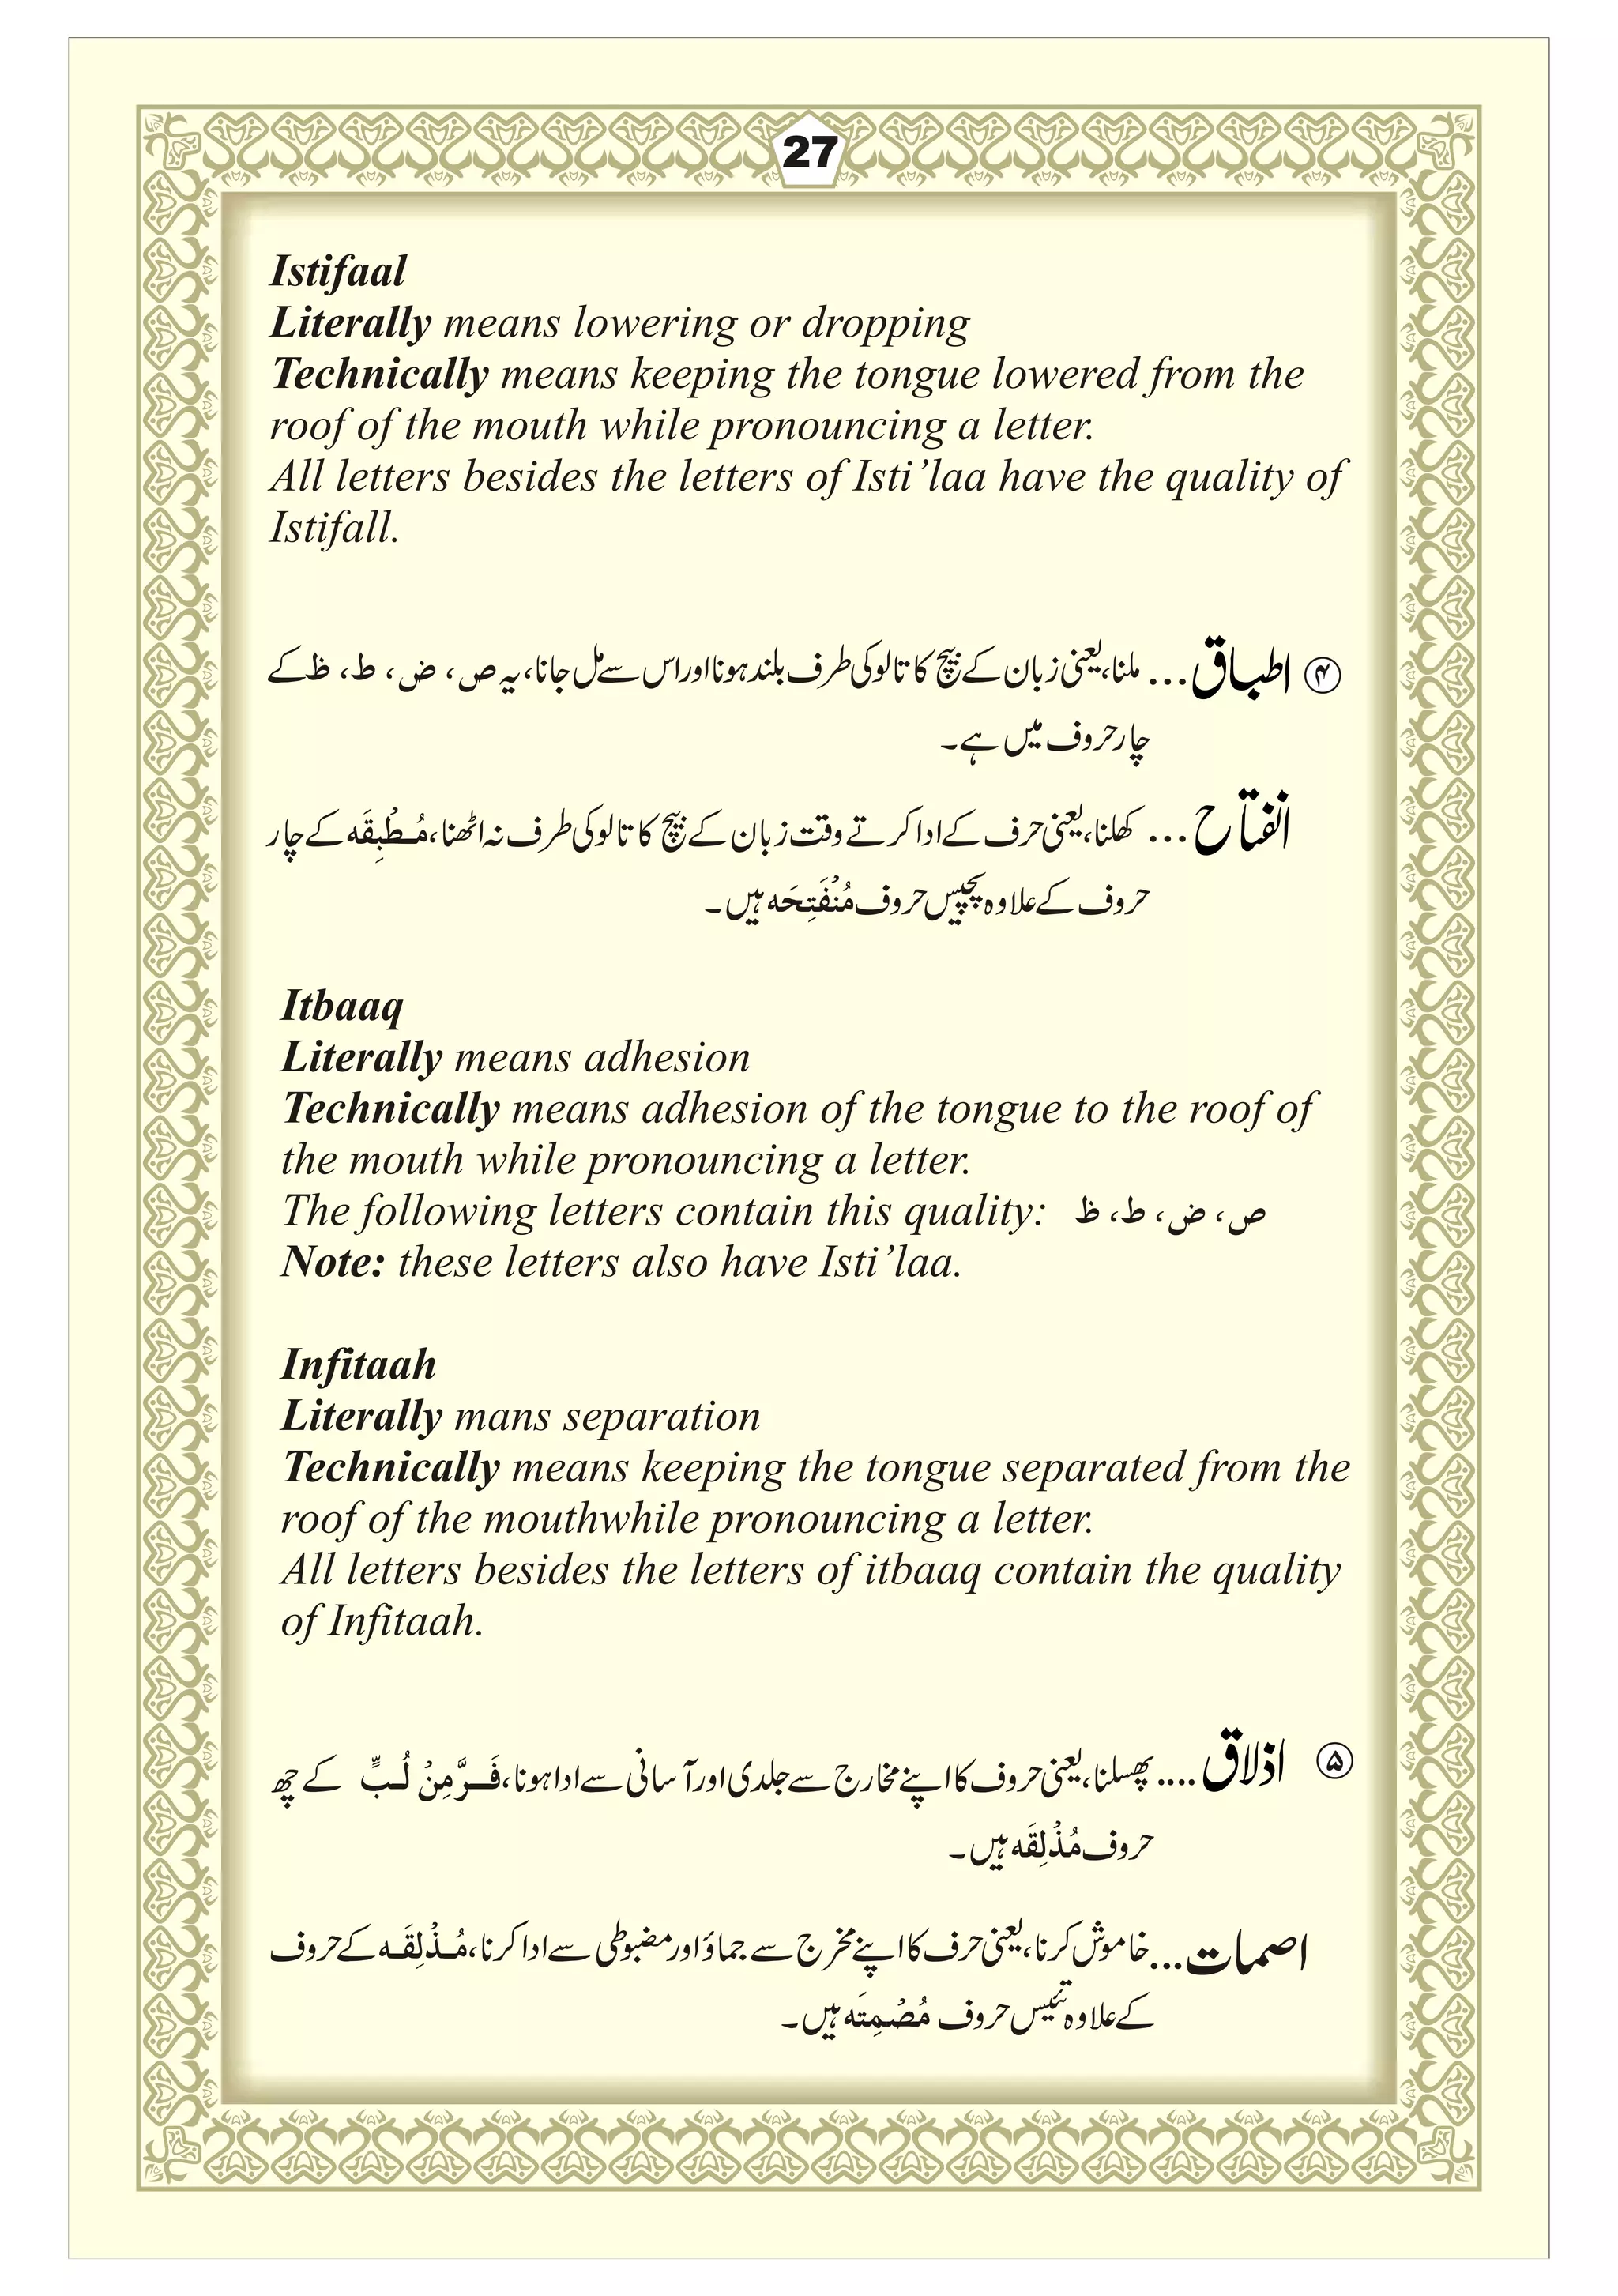 27
Istifaal
Literally means lowering or dropping
Technically means keeping the tongue lowered from the
roof of the mouth while pronouncing a letter.
All letters besides the letters of Isti’laa have the quality of
Istifall.
۴ اطباق... ملنا، یعنی زبان کے بیچ کا تالو کی طرف بلند ہونا اور اس سے مل جانا، یہ ص، ض، ط، ظ کے
چار حروف میں ہے۔
انفتاح... کھلنا، یعنی حرف کے ادا کرتے وقت زبان کے بیچ کا تالو کی طرف نہ اٹھنا، مُطْبِقَہ کے چار
حروف کے علاوہ پچیس حروف مُنْفَتِحَہ ہیں۔
Itbaaq
Literally means adhesion
Technically means adhesion of the tongue to the roof of
the mouth while pronouncing a letter.
The following letters contain this quality: ص، ض، ط، ظ
Note: these letters also have Isti’laa.
Infitaah
Literally mans separation
Technically means keeping the tongue separated from the
roof of the mouthwhile pronouncing a letter.
All letters besides the letters of itbaaq contain the quality
of Infitaah.
۵ اذلاق.... پھسلنا، یعنی حروف کا اپنے مخارج سے جلدی اور آسانی سے ادا ہونا، فَـرَّ مِنْ لُـبٍّ کے چھ
حروف مُذْلِقَہ ہیں۔
اصمات... خاموش کرنا، یعنی حرف کا اپنے مخرج سے جماؤ اور مضبوطی سے ادا کرنا، مُـذْلِقَـہ کے حروف
کے علاوہ تئیس حروف مُصْمِتَہ ہیں۔